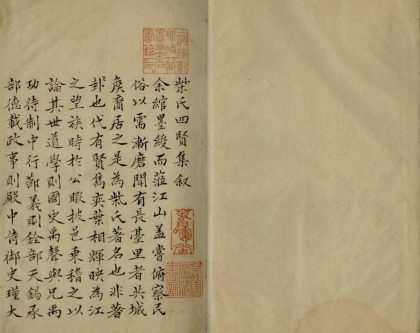 柴氏四賢集叙
余綰墨綬而蒞江山蓋嘗俯察民
俗以需漸磨聞有長臺里者共城
侯裔居之是為柴氏著名也非著
卦也代有賢雋奕葉相輝映為江
之望族時於公暇披邑乗稽之以
論其世道學則國史禹聲與兄禹
功待制中行鄭義則銓部天錫承
部德載政事則殿中侍御史瑾大